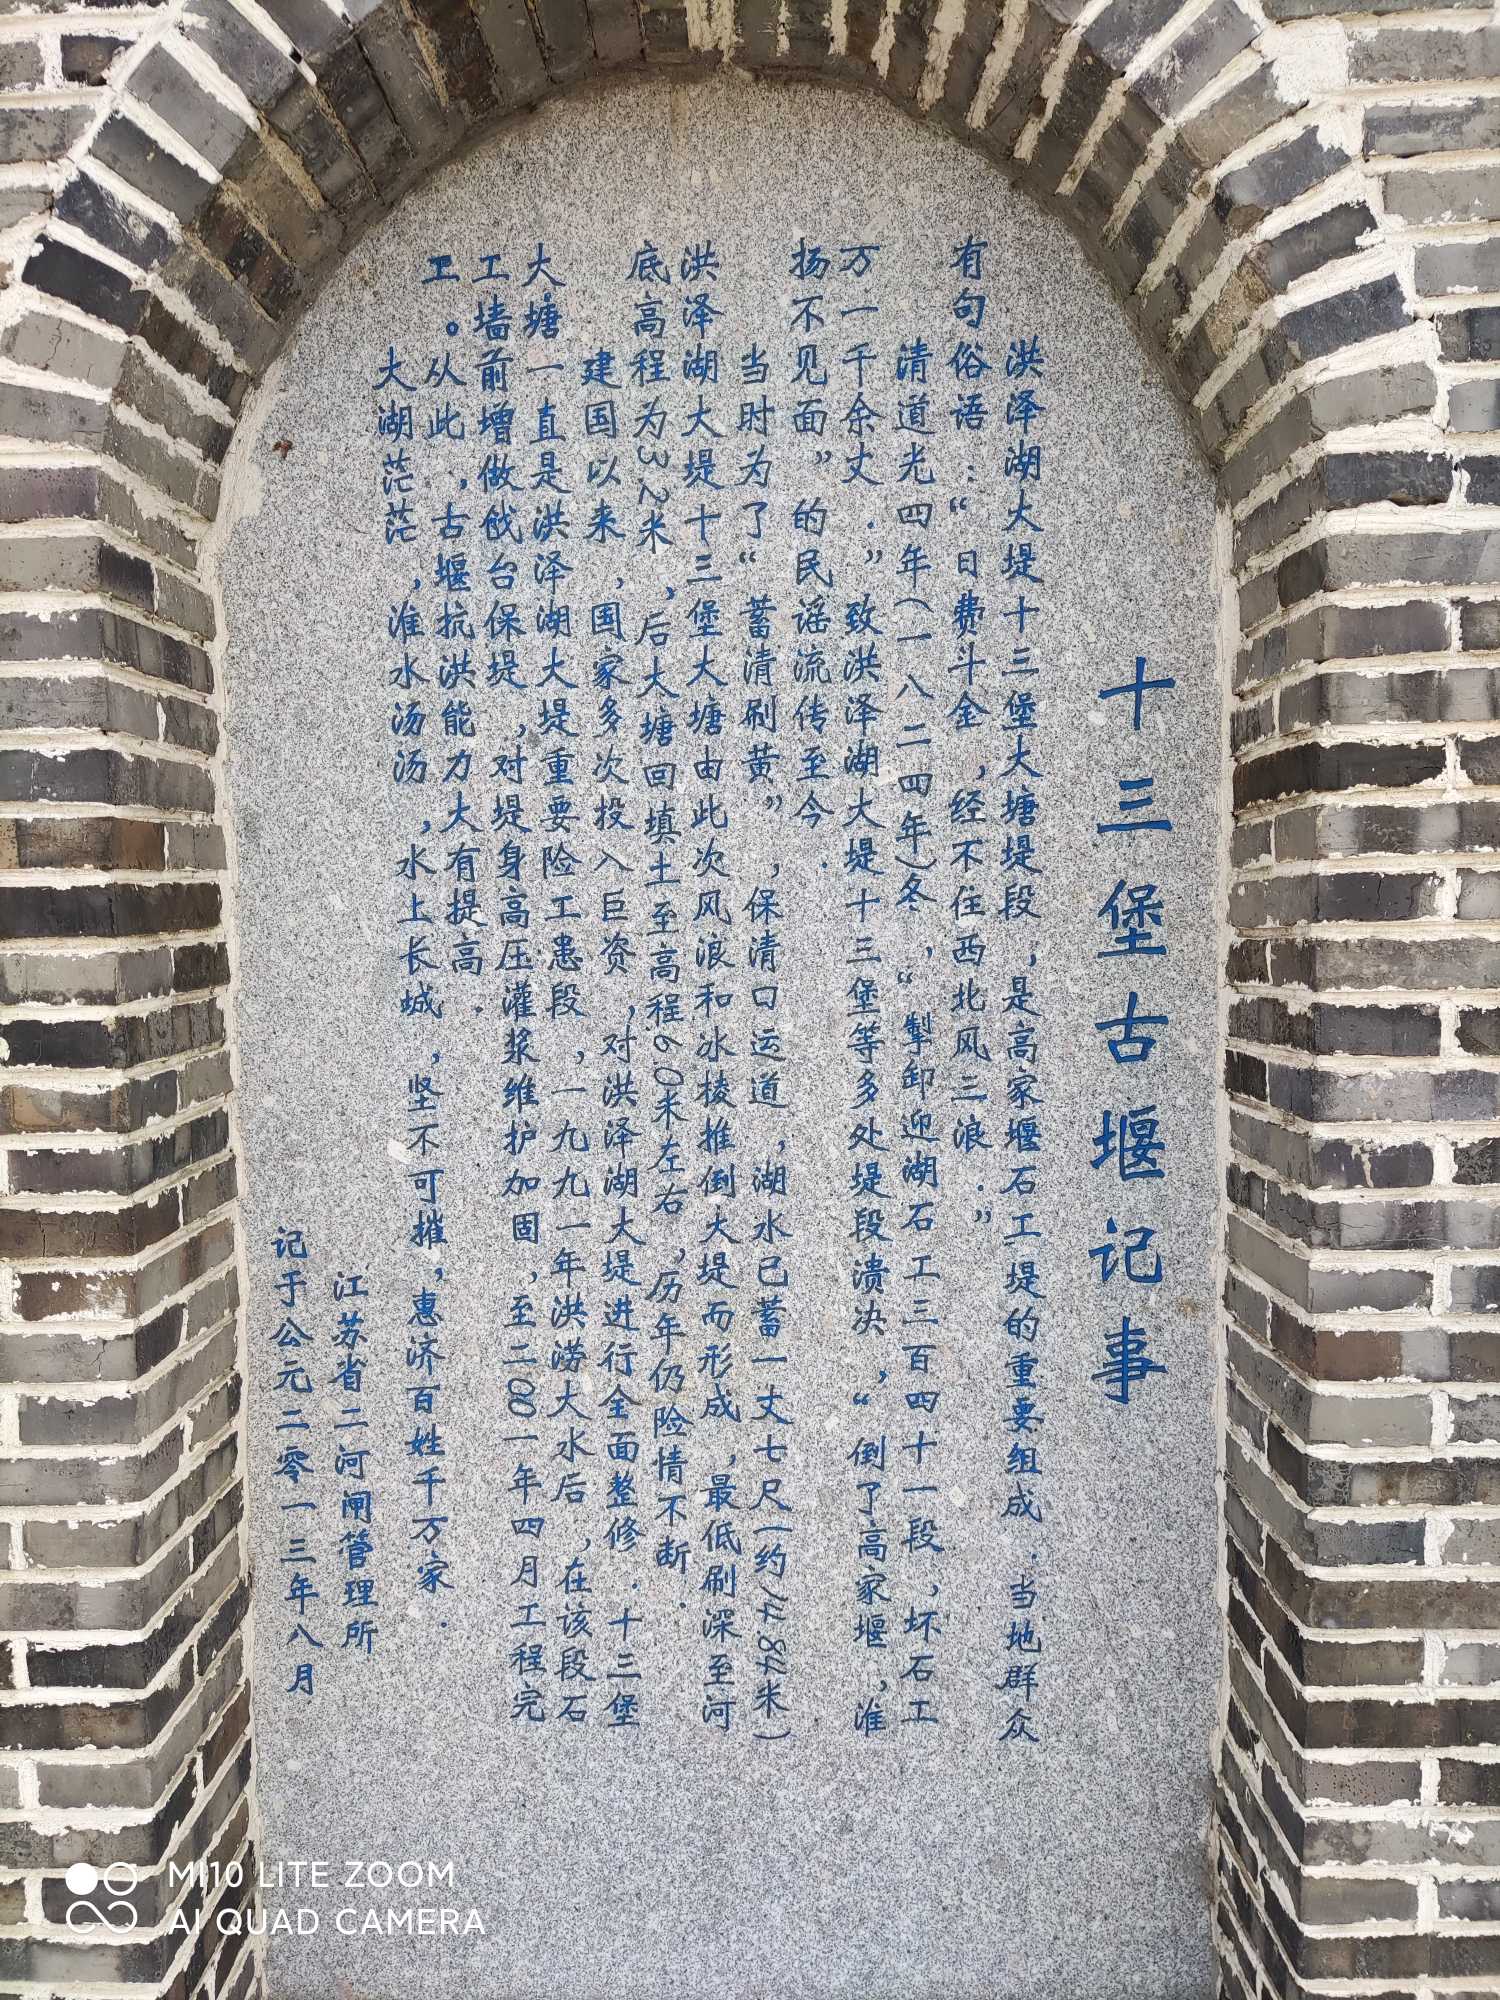 十三堡古堰记事
洪泽湖大堤十三堡大塘堤段，是高家堰石工堤的重要组成．当地群众
有句俗语：“日费斗金，经不住西北风三浪．”
清道光四年(一八二四年)冬，“掣卸迎湖石工三百四十一段，坏石工
万一千余丈．”致洪泽湖大堤十三堡等多处堤段溃决，“倒了高家堰，淮
扬不见面”的民谣流传至今．
当时为了“蓄清刷黄”，保清口运道，湖水已蓄一丈七尺(约11.87米)
洪泽湖大堤十三堡大塘由此次风浪和冰棱推倒大堤而形成，最低刷深至河
底高程为3.2米，后大塘回填土至高程6.0米左右，历年仍险情不断．
建国以来，国家多次投入巨资，对洪泽湖大堤进行全面整修．十三堡
大塘一直是洪泽湖大堤重要险工患段，一九九一年洪涝大水后，在该段石
工墙前增做戗台保堤，对堤身高压灌浆维护加固，至二00一年四月工程完
工。从此，古堰抗洪能力大有提高．
大湖茫茫，淮水汤汤，水上长城，坚不可摧，惠济百姓千万家．
江苏省二河闸管理所
记于公元二零一三年八月
MI 10 LITE ZOOM
AI QUAD CAMERA